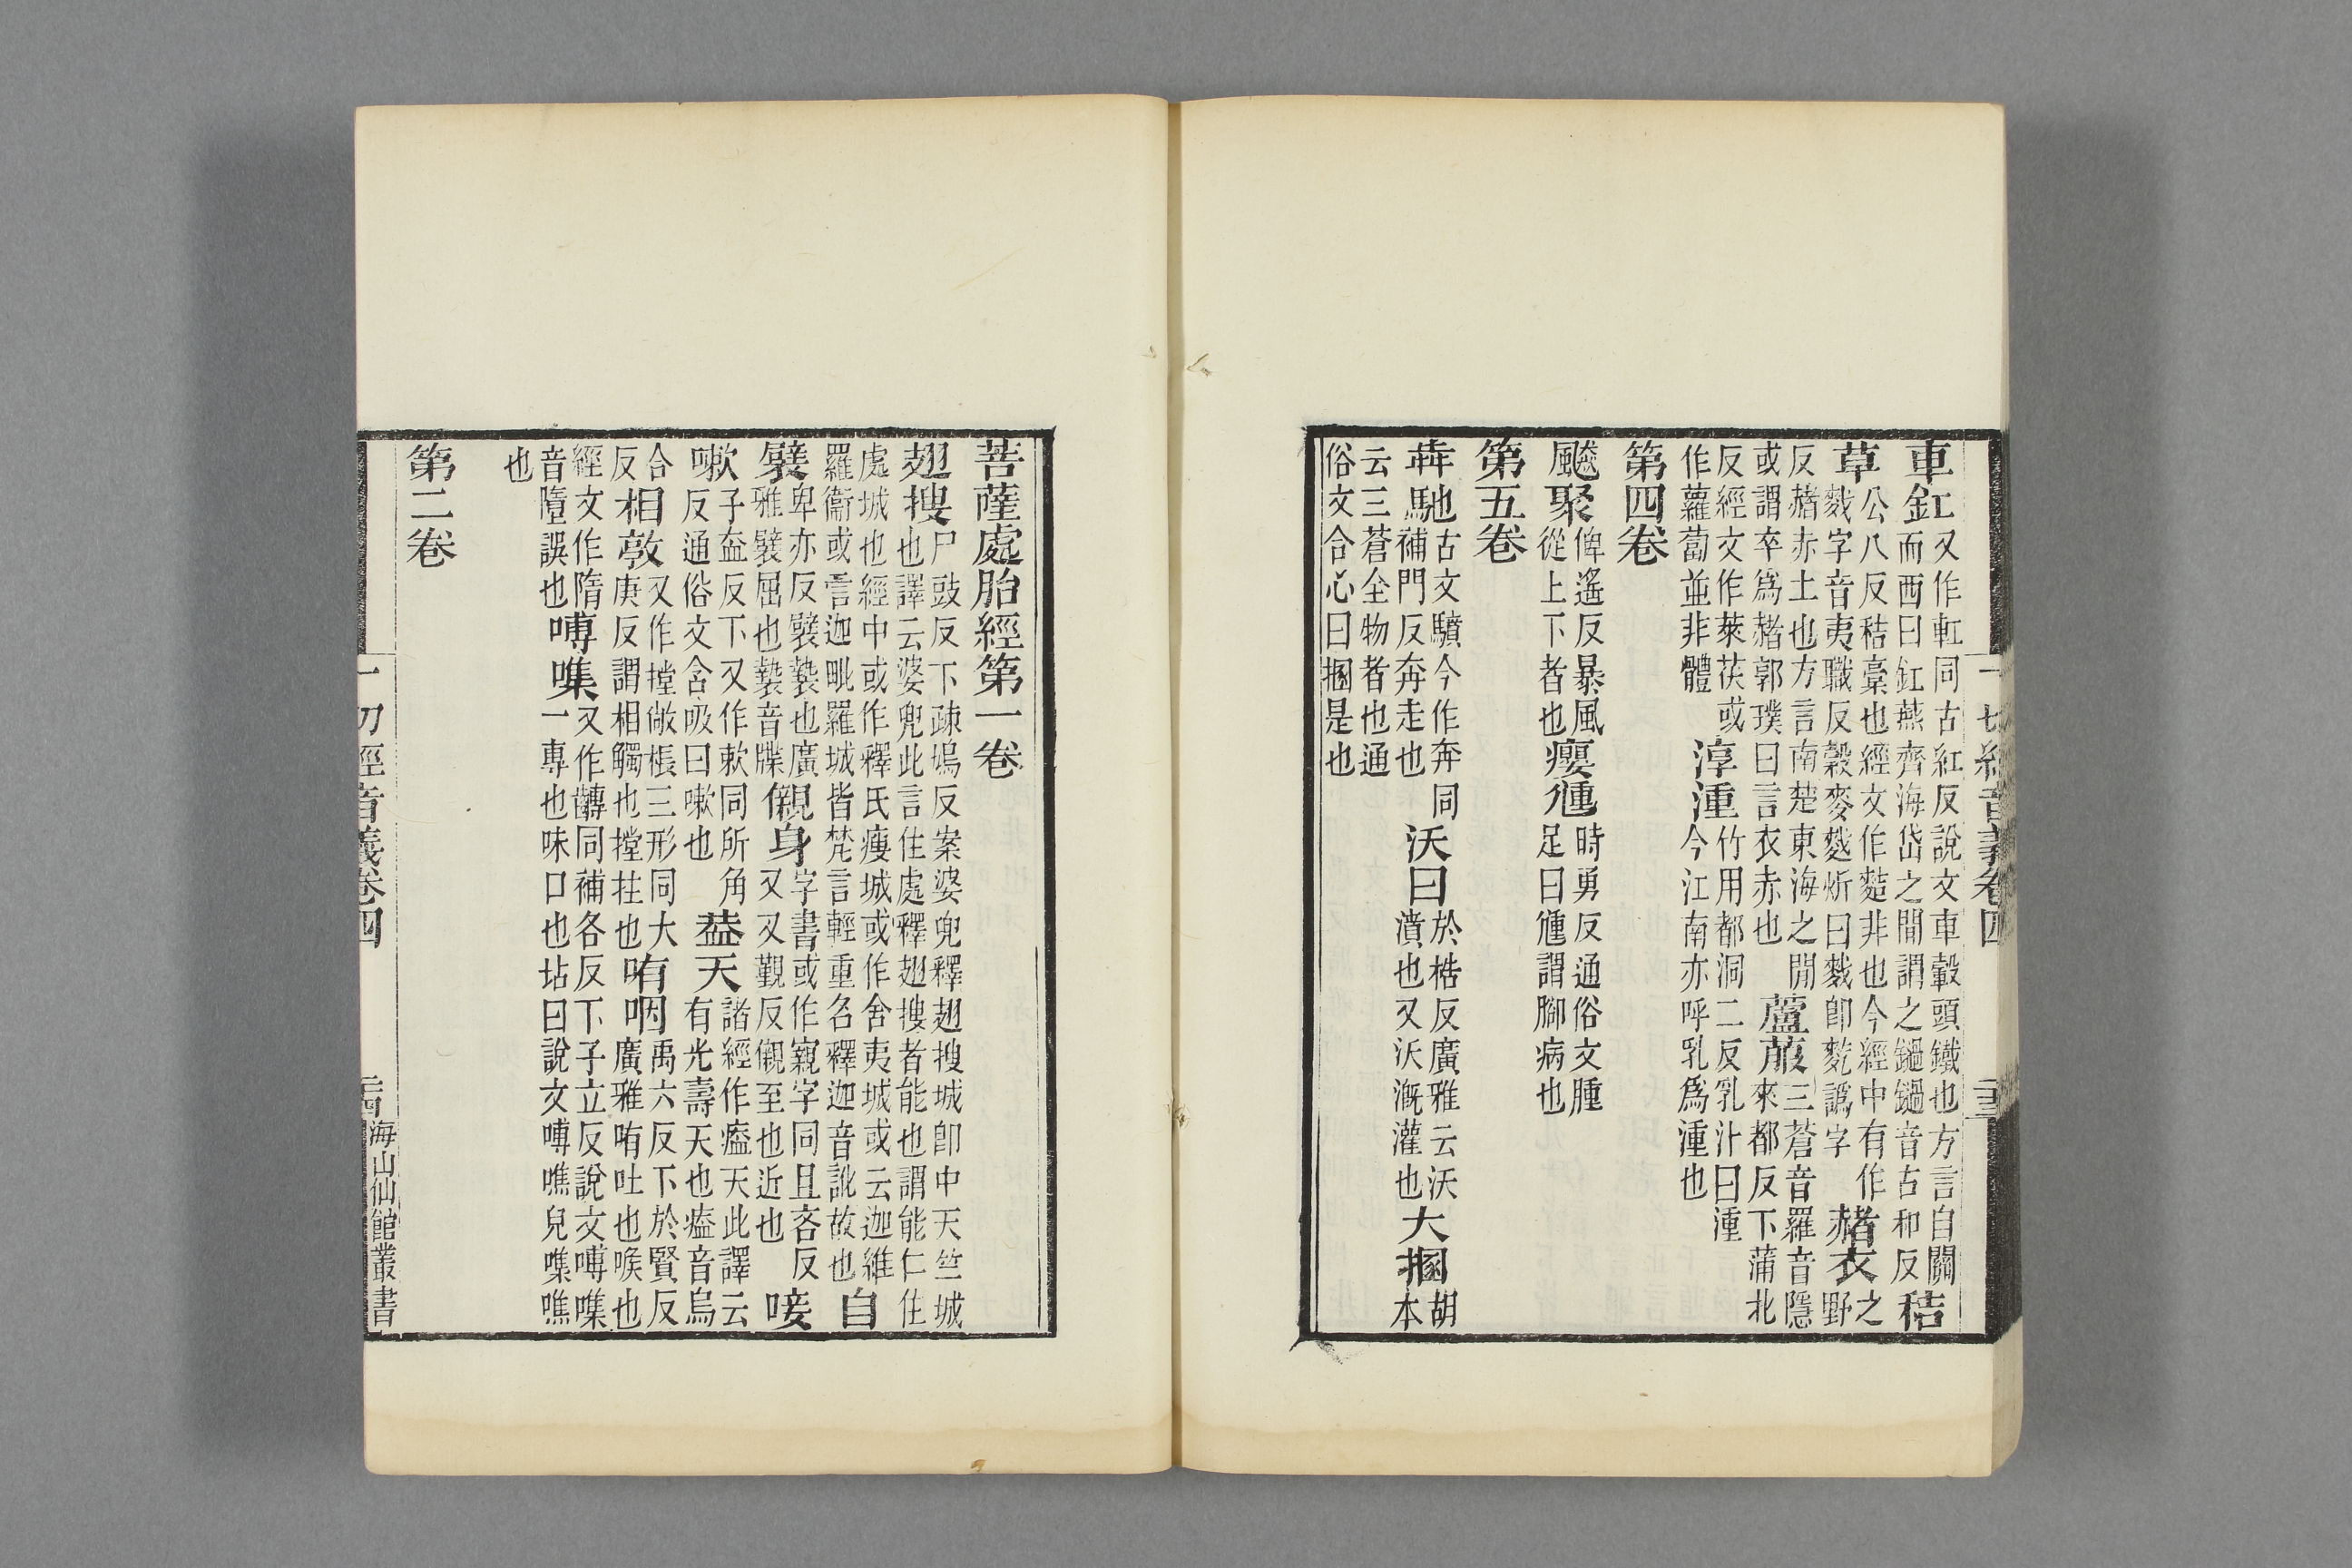 車釭又作軖同古紅反說文車轂頭鐵也方言自關而西曰釭燕齊海岱之間謂之鐹鐹音古和反秸
草公八反秸稾也經文作䕸非也今經中有作䴬字音夷職反穀麥䴬炘曰䴬卽麧譌字赭衣之野
反赭赤土也方言南楚東海之閒或謂卒爲赭郭璞曰言衣赤也蘆菔三蒼音羅音隱來都反下蒲北
反經文作萊茯或作蘿蔔並非體淳湩竹用都洞二反乳汁曰湩今江南亦呼乳爲湩也
第四卷
飈聚俾遙反暴風從上下者也癭尰時勇反通俗文腫足曰尰謂腳病也
第五卷
犇馳古文驞今作奔同補門反奔走也沃曰於梏反廣雅云沃濆也又沃漑灌也大掴胡本
云三蒼全物者也通俗文合心曰掴是也
一切經音義卷四
菩薩處胎經第一卷
翅搜尸豉反下疎塢反案婆兜釋翅搜城卽中天竺城也譯云婆兜此言住處釋翅搜者能也謂能仁住
處城也經中或作釋氏瘦城或作舍夷城或云迦維羅衞或言迦毗羅城皆梵言輕重名釋迦音訛故也自
襞卑亦反襞褺也廣雅襞屈也褺音牒儭身字書或作寴字同且吝反又又觀反儭至也近也唼
嗽子盍反下又作欶同所角反通俗文含吸曰嗽也㿉天諸經作㿉天此譯云有光壽天也㿉音烏
合相敦又作摚敞棖三形同大庚反謂相觸也摚拄也哊咽禹六反下於賢反廣雅哊吐也喉也
經文作隋音墮誤也嚩㗱又作䶈同補各反下子立反說文嚩㗱一專也味口也坫曰說文嚩噍皃㗱噍
也
第二卷
一切經音義卷四
海山仙館叢書